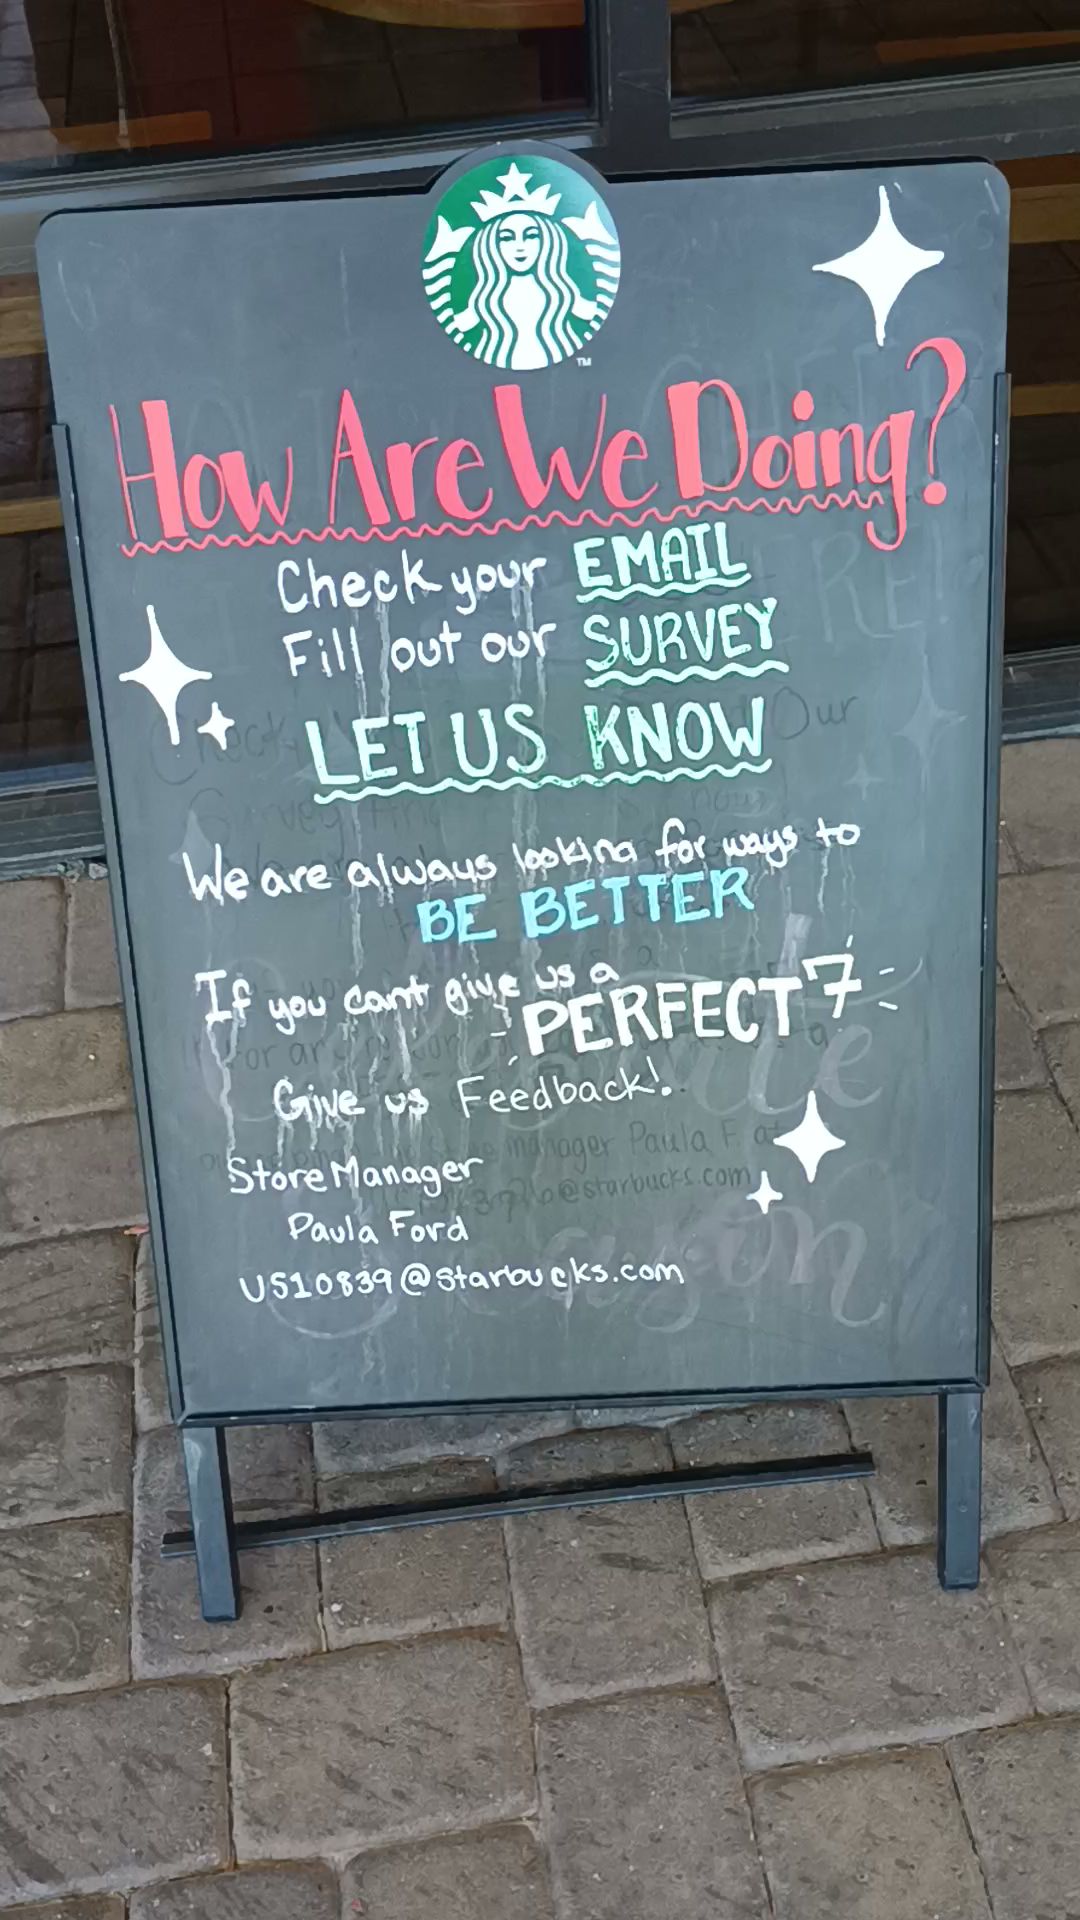 How Are We Doing?
Check your EMAIL
Fill out our SURVEY
LET US KNOW
We are always looking for ways to
BE BETTER
If you cant give us a
PERFECT 7
Give us Feedback!
Store Manager
Paula Ford
US10839@starbucks.com
TM